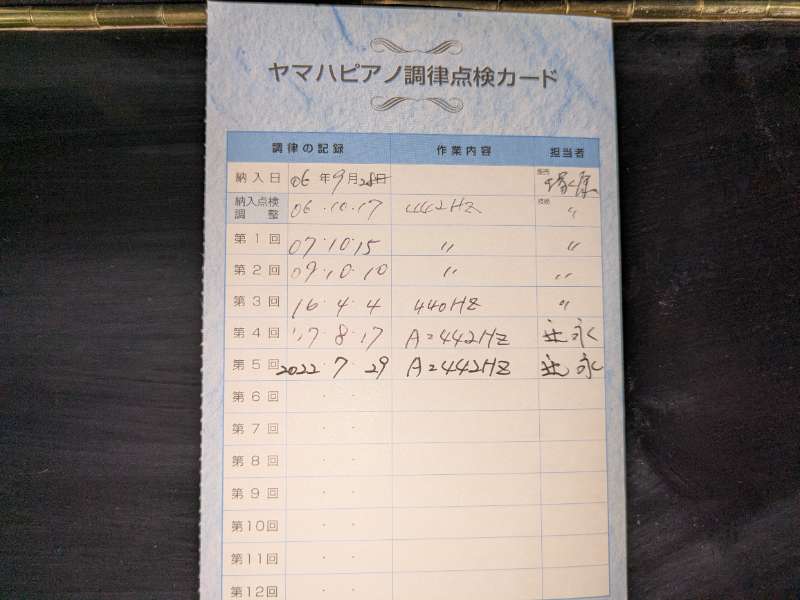 ヤマハピアノ調律点検カード
調律の記録 作業内容 担当者
納入日 '06年9月28日
納入点検調整 06.10.17 442HZ 〃
第1回 07.10.15 〃 〃
第2回 09.10.10 〃 〃
第3回 16.4.4 440HZ 〃
第4回 '17.8.17 A=442HZ 永
第5回 2022.7.29 A=442HZ 永
第6回 . .
第7回 . .
第8回 . .
第9回 . .
第10回 . .
第11回 . .
第12回 . .